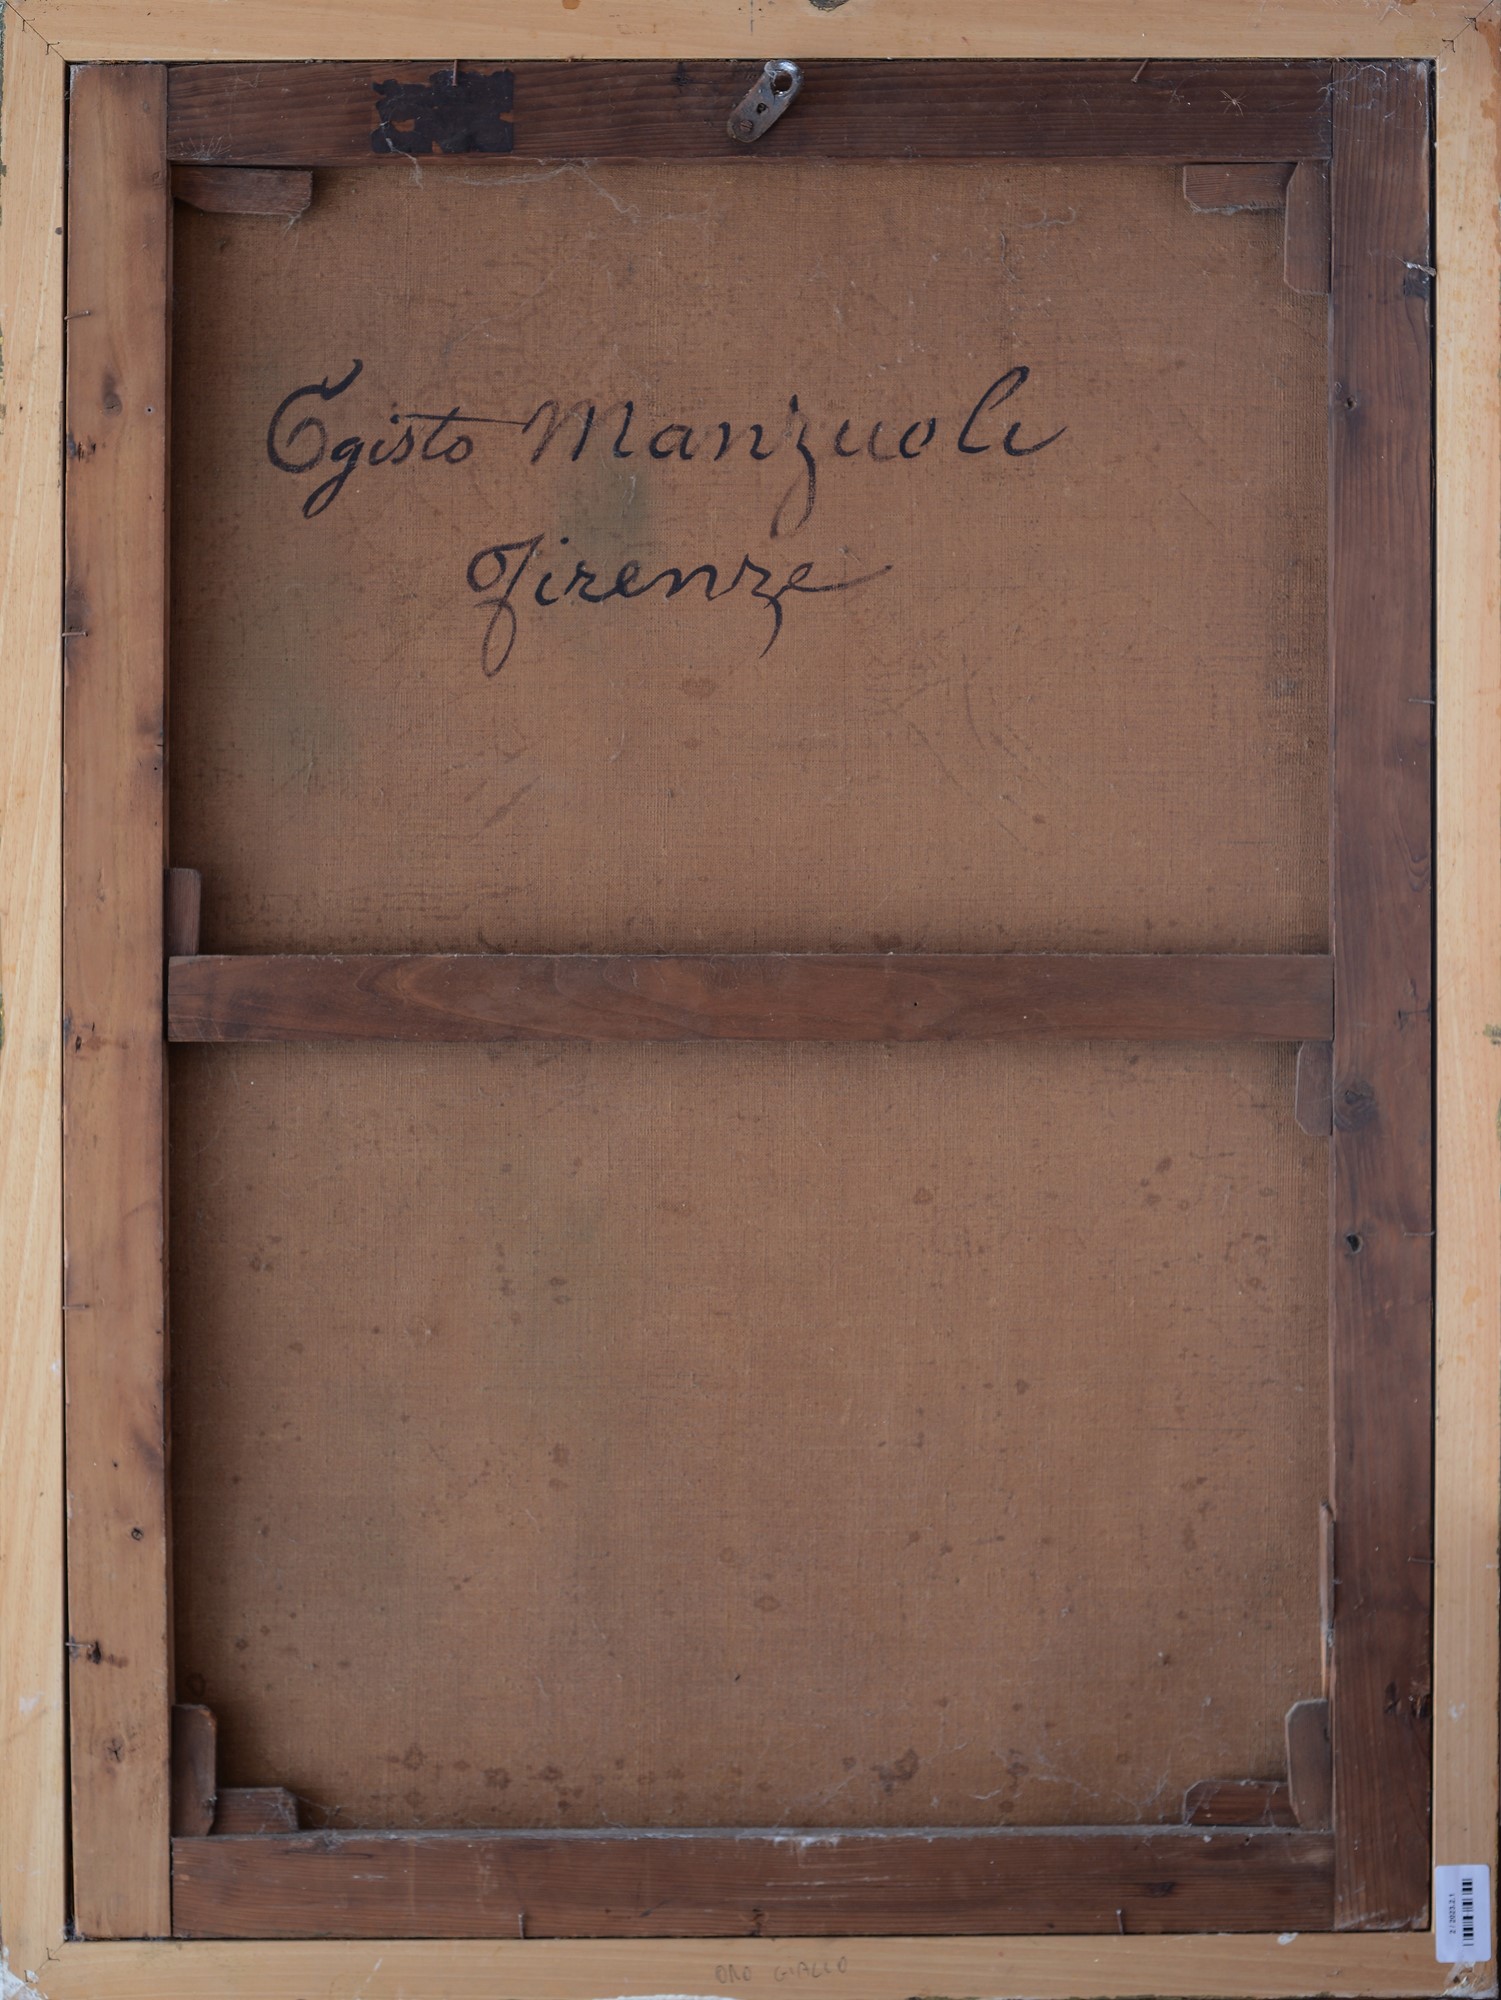 Egisto Manzuoli
Firenze
ORO GIALLO
2 / 2023.2.1